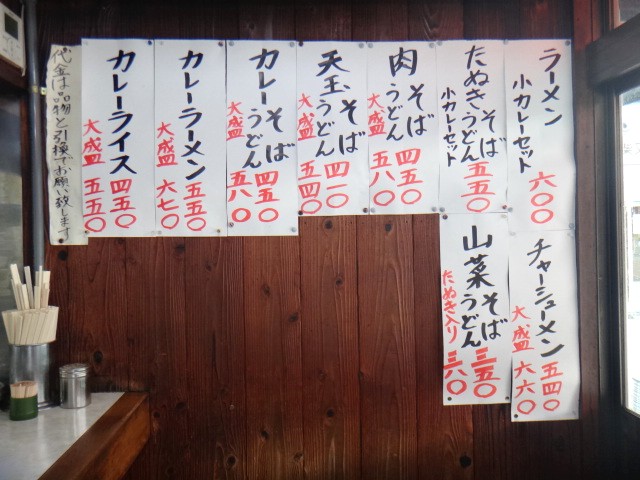 ラーメン
小カレーセット 六〇〇
たぬき そば
うどん
小カレーセット 五五〇
肉 そば
うどん 四五〇
大盛 五八〇
天玉 そば
うどん 四一〇
大盛 五四〇
カレー そば
うどん 四五〇
大盛 五八〇
カレーラーメン 五五〇
大盛 六七〇
カレーライス 四五〇
大盛 五五〇
代金は品物と引換でお願い致します
チャーシューメン 五四〇
大盛 六六〇
山菜 そば
うどん 三五〇
たぬき入り 三八〇